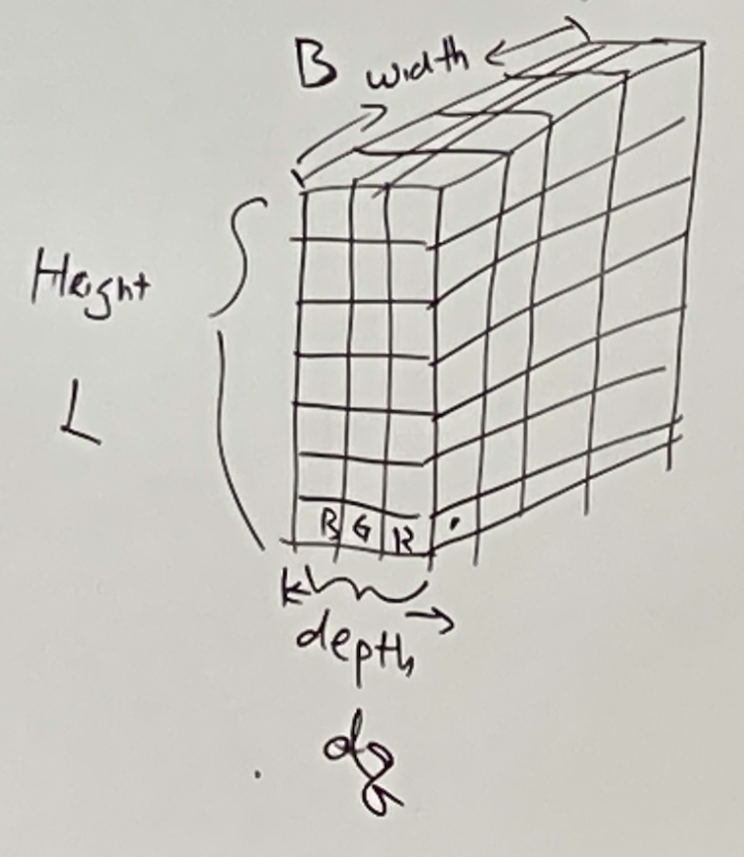 B width
Height
L
B G R
depth